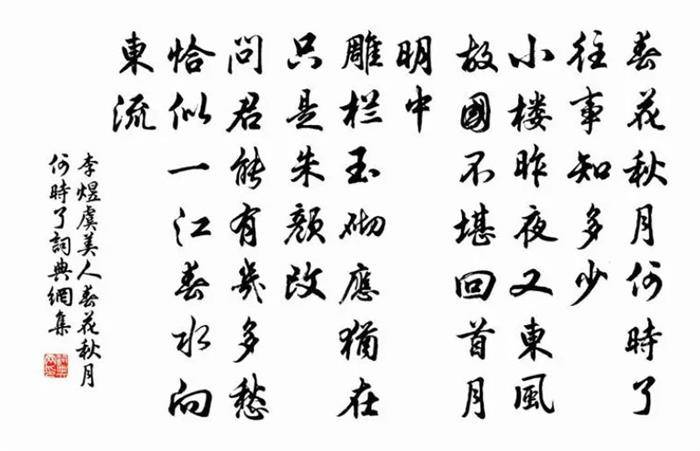 春花秋月何時了
往事知多少
小楼昨夜又東風
故國不堪回首月
明中
雕栏玉砌應猶在
只是朱颜改
問君能有幾多愁
恰似一江春水向
東流
李煜虞美人春花秋月
何時了詞典網集